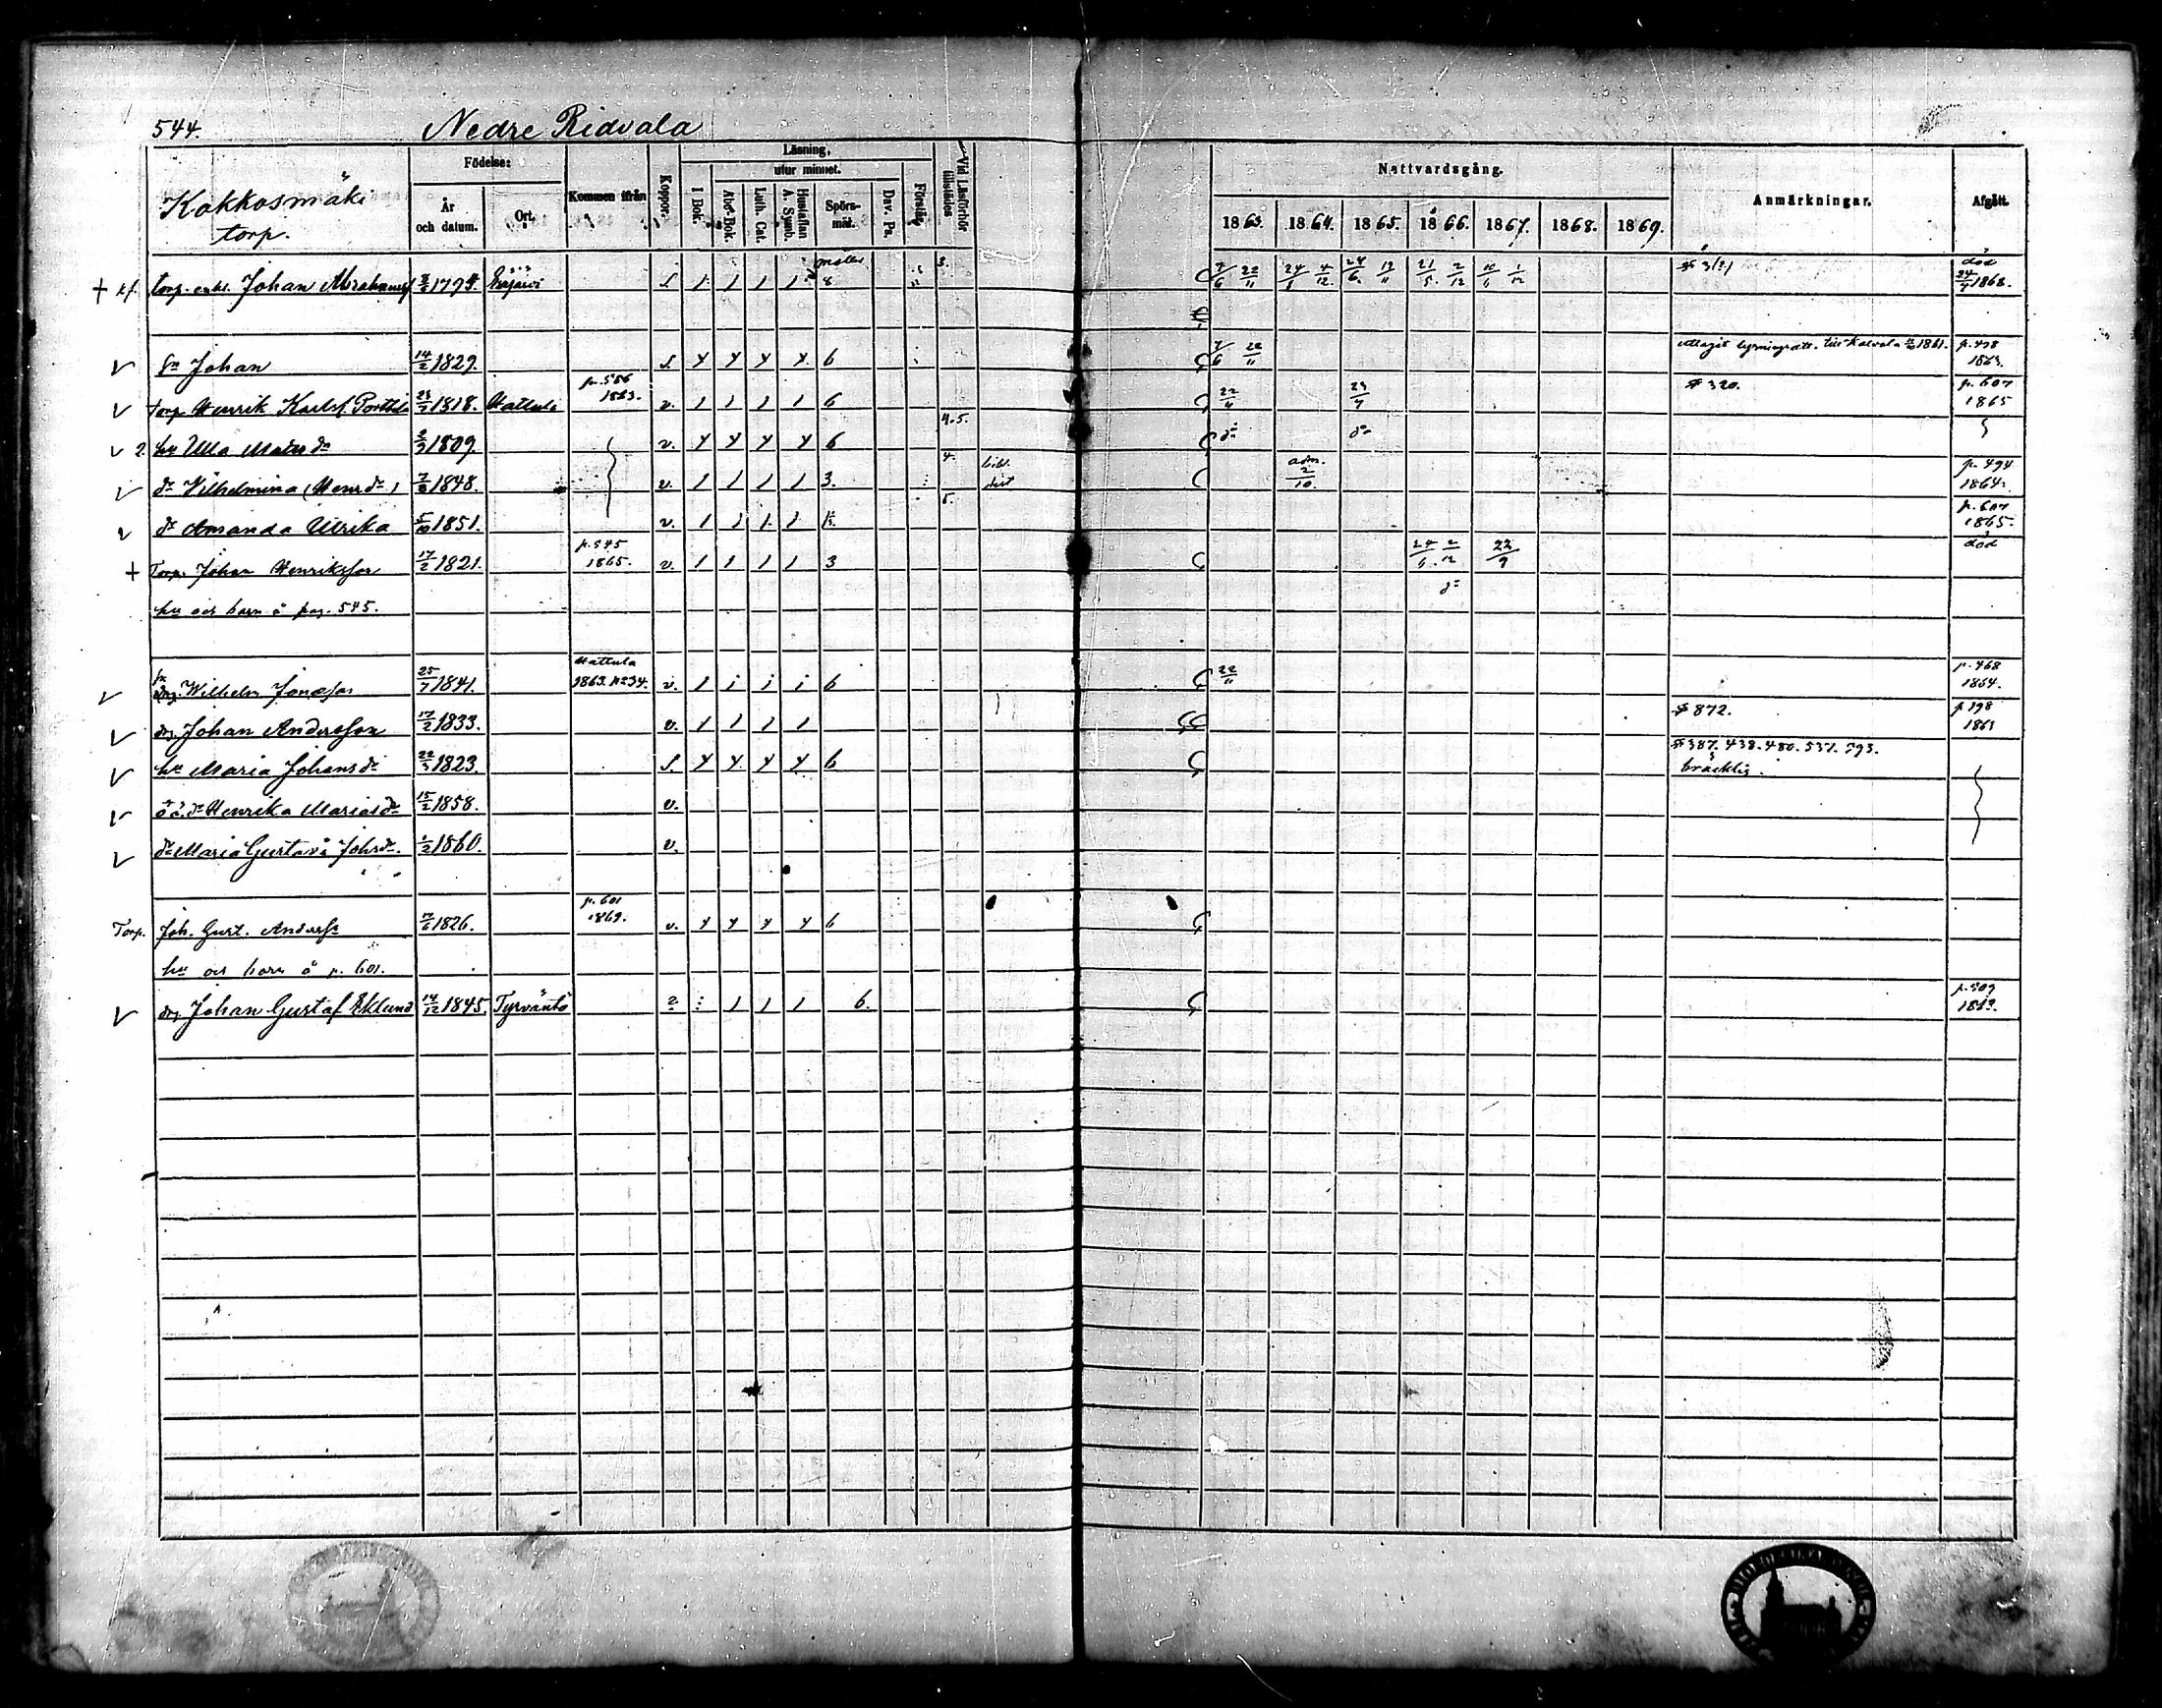 544. Nedre Ridvala
Kokkosmäki torp.
Födelse: År och datum. Ort. Kommen ifrån Koppor. Läsning, I Bok. utur minnet. Abc-Bok. Luth. Cat. Hustaflan A. Symb. Spörsmål. Dav. Ps. Förstår. Vid Läsförhör tillstädes
Nattvardsgång. 1863. 1864. 1865. 1866. 1867. 1868. 1869. Anmärkningar. Afgått.
torp. enkl. Johan Abrahamss 1794 1 1 1 1 8 3. 24/6 21/5 2/12 död 24/4 1868.
Sn Johan 14/2 1829. y y y y 6 7/6 22/11 p. 478 1863.
torp Henrik Karlss. Porttila 1818. Hattula p. 586 1863. v. 1 1 1 1 6 22/11 # 320. p. 607 1865
hu Ulla Matsdr 1809. v. y y y y 6 4.5. do do
dr Wilhelmina (Henrdr) 1848. v. 1 1 1 1 3. 4. adm. 2/10. p. 494 1864.
dr Amanda Ulrika 5/10 1851. v. 1 1 1 1 5. p. 607 1865.
Torp. Johan Henriksson 17/2 1821. p. 545 1865. v. 1 1 1 1 3 24/6. 2/12 22/9 död
hu och barn å pag. 545. do
drg. Wilhelm Jonasson 25/7 1841. Hattula 1863. No 34. v. 1 1 1 1 6 22/11 p. 468 1864.
drg. Johan Andersson 17/2 1833. v. 1 1 1 1 # 872. p 398 1863
hu Maria Johansdr 22/3 1823. y y y y 6 # 387. 438. 480. 537. 793. bräcklig.
o.ä. dr Henrika Mariasdr 15/2 1858. v.
dr Maria Gustava Johsdr. 1/2 1860. v.
Torp. Joh. Gust. Anderss 1826. p. 601 1869. v. y y y y 6
hu och barn å p. 601.
drg. Johan Gustaf Eklund 14/12 1845. Tyrväntö 2 1 1 1 6. p. 509